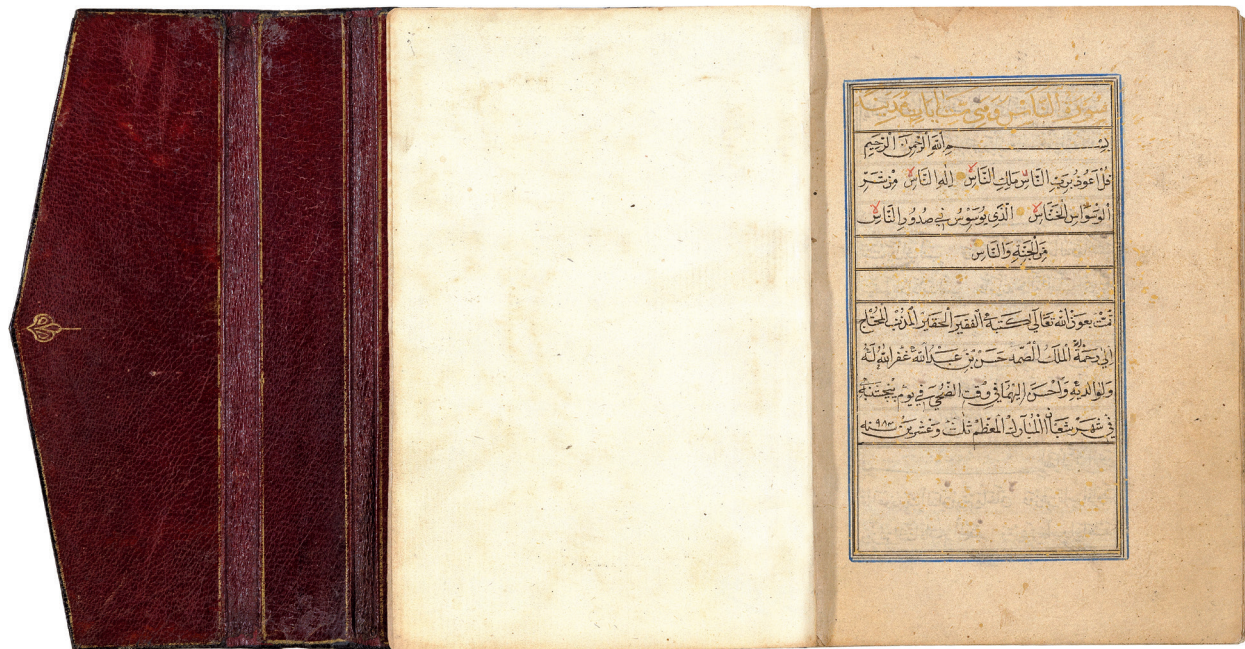 سورة الناس وهي ست آيات مدنية
بسم الله الرحمن الرحيم
قُل اَعوذُ بربِ النَّاسِ مَلِكِ النَّاسِ لا اِلٰهِ النَّاسِ لا مِن شَرِّ
الوَسْوَاسِ الخَنَّاسِ لا الَّذي يُوَسْوِسُ في صُدُورِ النَّاسِ لا
مِنَ الجِنَّةِ وَالنَّاسِ
تمّت بعون الله تعالى كتبهُ الفقير الحقير المذنب المحتاج
الى رحمة الملك الصمد حَسَن بن عبد الله غفر الله لهُ
ولوالديه واحسن اليهما في وقت الضحى في يوم پنجشنبه
في شهر شعبان المبارك المعظم ثلث وعشرين سنه ٩٨٣